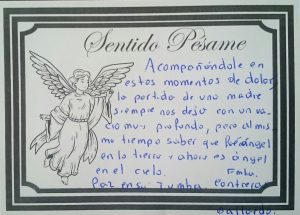 Sentido Pésame
Acompañándole en
estos momentos de dolor,
la partida de una madre
siempre nos deja con un va
cío muy profundo, pero al mis
mo tiempo saber que fue ángel
en la tierra y ahora es ángel
en el cielo. Fmla.
Paz en su tumba. Contreras
Gallardo.